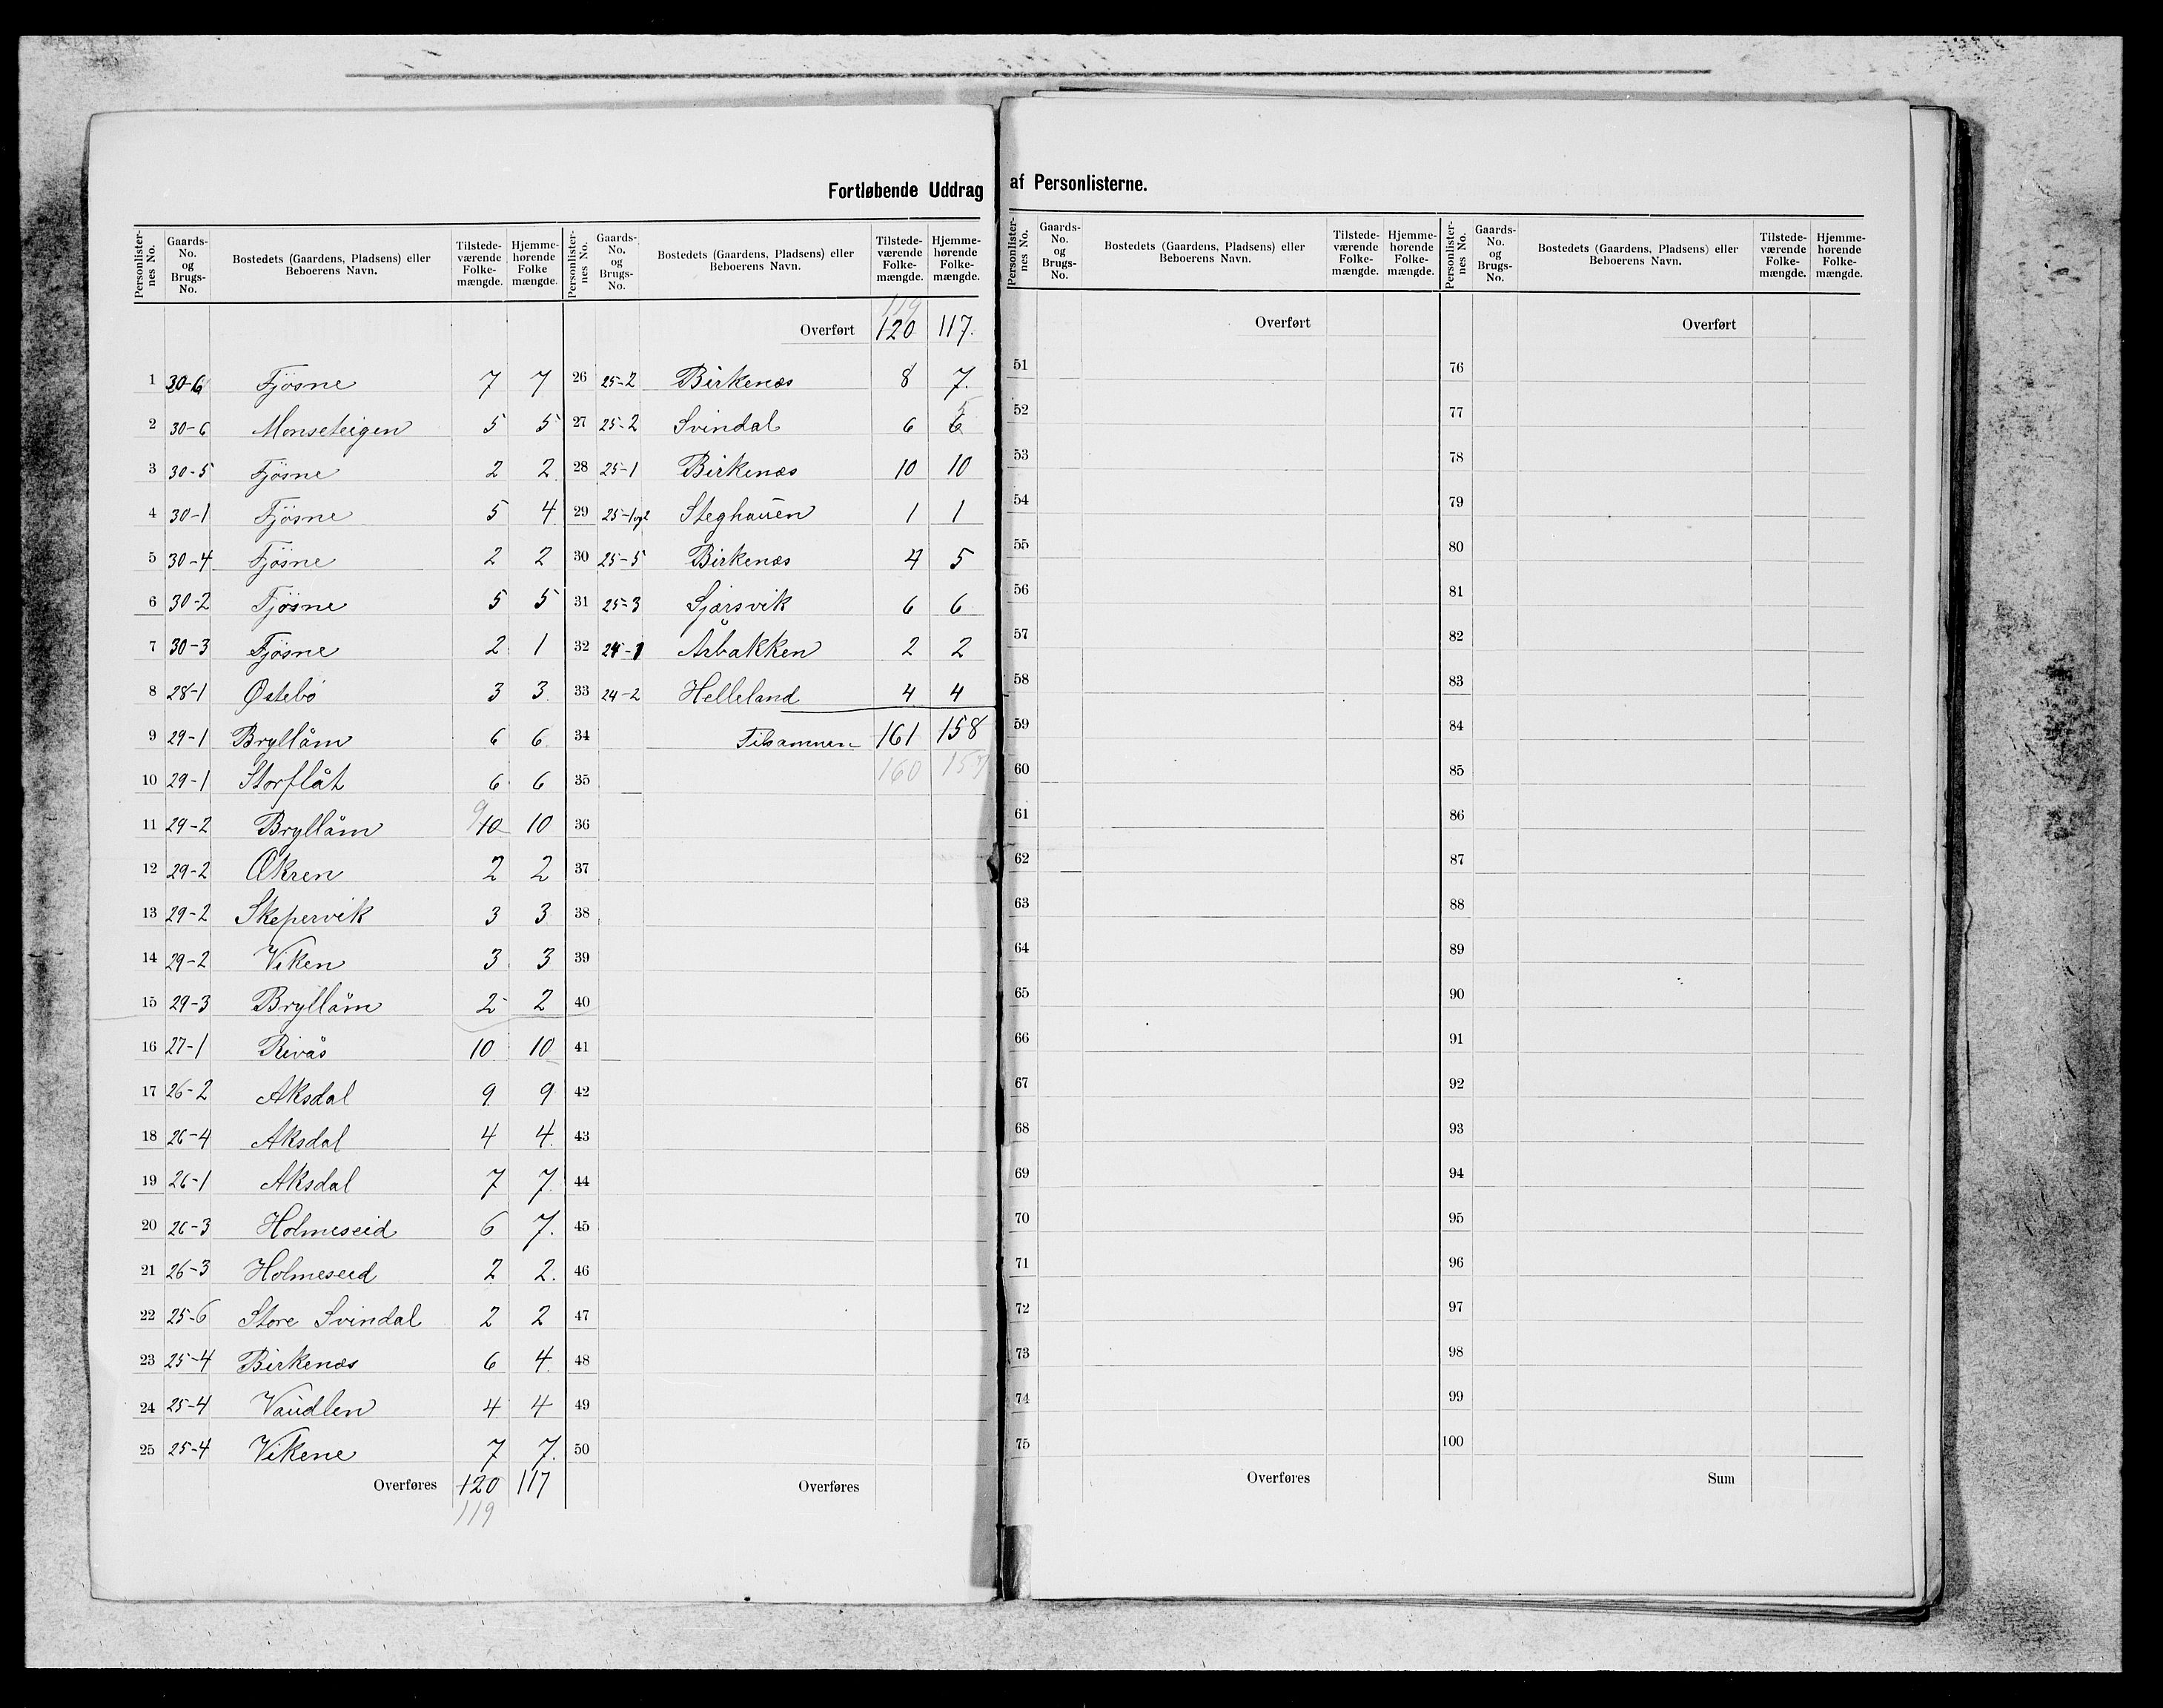 Fortløbende Uddrag af Personlisterne.
Personlister-nes No. | Gaards-No. og Brugs-No. | Bostedets (Gaardens, Pladsens) eller Beboerens Navn. | Tilstede-værende Folke-mængde. | Hjemme-hørende Folke mængde.
1 30-6 Fjøsne 7 7
2 30-6 Monseteigen 5 5
3 30-5 Fjøsne 2 2
4 30-1 Fjøsne 5 4
5 30-4 Fjøsne 2 2
6 30-2 Fjøsne 5 5
7 30-3 Fjøsne 2 1
8 28-1 Østebö 3 3
9 29-1 Bryllåm 6 6
10 29-1 Storflåt 6 6
11 29-2 Bryllåm 9 10 10
12 29-2 Ækren 2 2
13 29-2 Skepervik 3 3
14 29-2 Viken 3 3
15 29-3 Bryllåm 2 2
16 27-1 Rivås 10 10
17 26-2 Aksdal 9 9
18 26-4 Aksdal 4 4
19 26-1 Aksdal 7 7
20 26-3 Holmeseid 6 7
21 26-3 Holmeseid 2 2
22 25-6 Store Svindal 2 2
23 25-4 Birkenæs 6 4
24 25-4 Vaudlen 4 4
25 25-4 Vikene 7 7
Overføres 120 117
119
Personlister-nes No. | Gaards-No. og Brugs-No. | Bostedets (Gaardens, Pladsens) eller Beboerens Navn. | Tilstede-værende Folke-mængde. | Hjemme-hørende Folke-mængde.
119
Overført 120 117.
26 25-2 Birkenæs 8 7.
27 25-2 Svindal 6 6 5
28 25-1 Birkenæs 10 10
29 25-1og2 Steghauen 1 1
30 25-5 Birkenæs 4 5
31 25-3 Sjørsvik 6 6
32 24-1 Årbakken 2 2
33 24-2 Helleland 4 4
34 Tilsammen 161 158
35 160 157
36
37
38
39
40
41
42
43
44
45
46
47
48
49
50
Overføres
Personlister-nes No. | Gaards-No. og Brugs-No. | Bostedets (Gaardens, Pladsens) eller Beboerens Navn. | Tilstede-værende Folke-mængde. | Hjemme-hørende Folke-mængde.
Overført
51
52
53
54
55
56
57
58
59
60
61
62
63
64
65
66
67
68
69
70
71
72
73
74
75
Overføres
Personlister-nes No. | Gaards-No. og Brugs-No. | Bostedets (Gaardens, Pladsens) eller Beboerens Navn. | Tilstede-værende Folke-mængde. | Hjemme-hørende Folke-mængde.
Overført
76
77
78
79
80
81
82
83
84
85
86
87
88
89
90
91
92
93
94
95
96
97
98
99
100
Sum